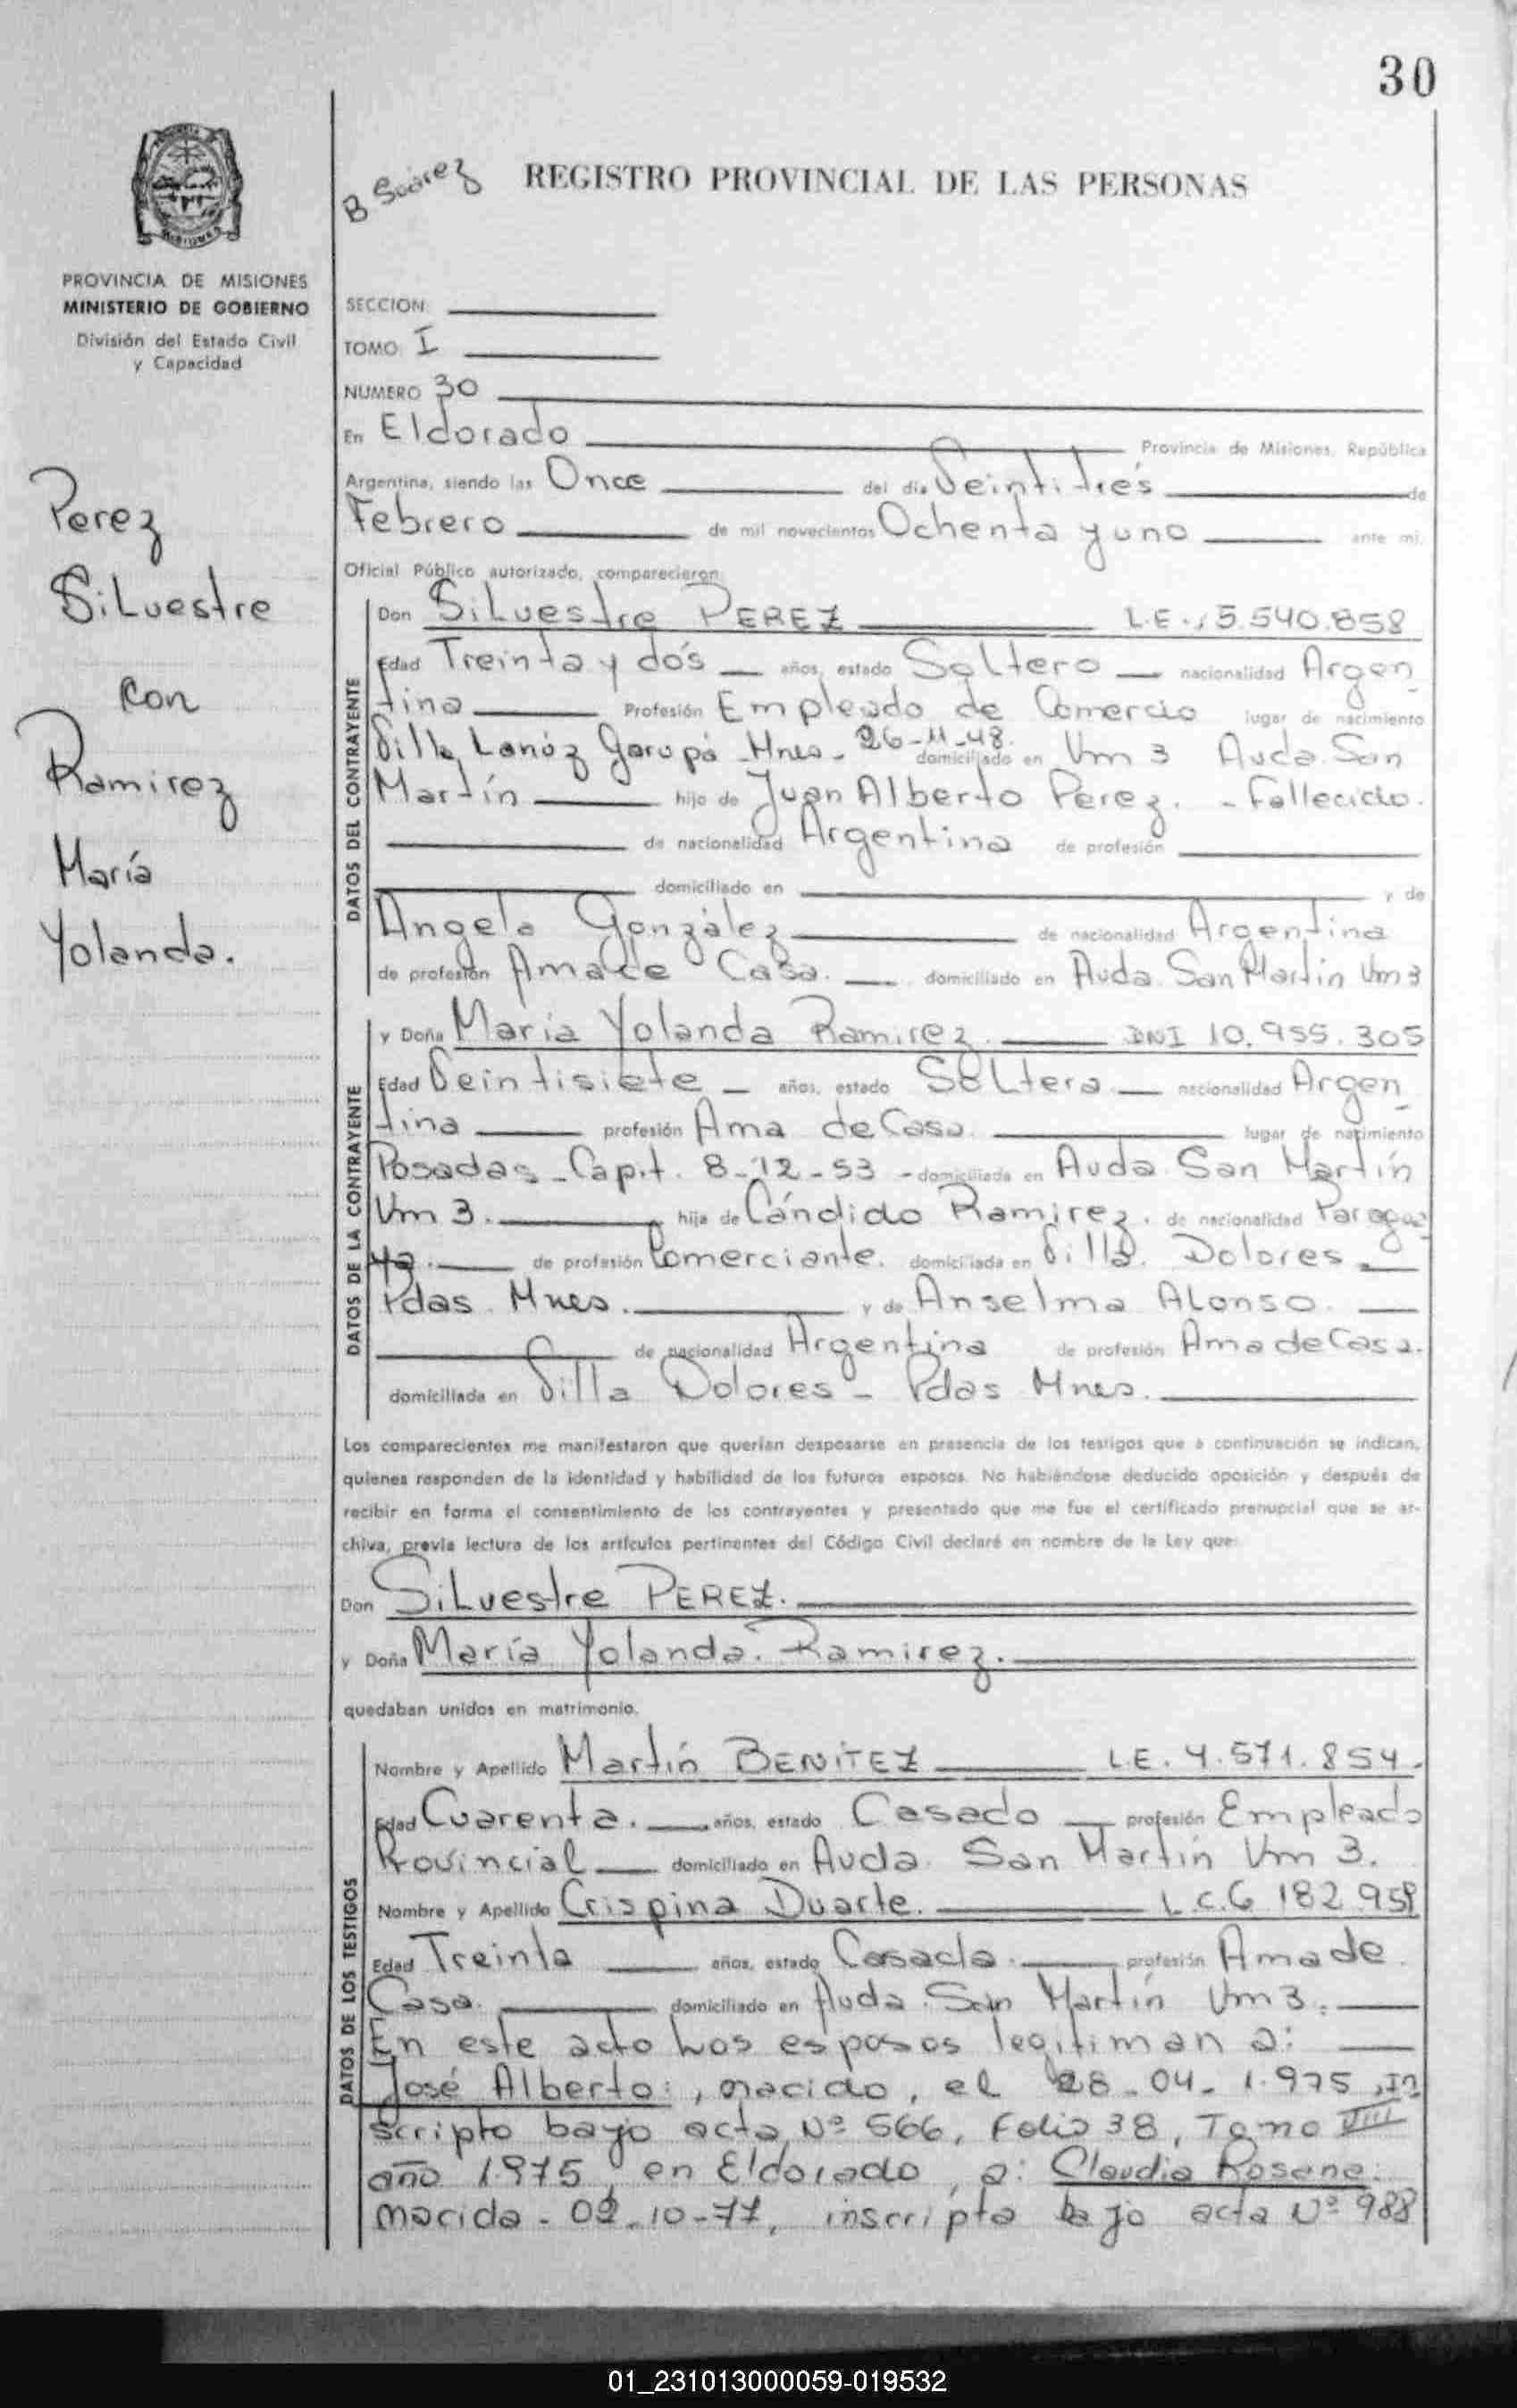 30
B Suárez
REGISTRO PROVINCIAL DE LAS PERSONAS
PROVINCIA DE MISIONES
MINISTERIO DE GOBIERNO
División del Estado Civil
y Capacidad
SECCION:
TOMO: I
NUMERO 30
En Eldorado Provincia de Misiones, República
Argentina, siendo las Once del día Veintitrés de
Febrero de mil novecientos Ochenta y uno ante mí,
Oficial Público autorizado, comparecieron:
Perez
Silvestre
con
Ramirez
María
Yolanda.
DATOS DEL CONTRAYENTE
Don Silvestre PEREZ L.E. 5.540.858
Edad Treinta y dós años, estado Soltero nacionalidad Argen
tina Profesión Empleado de Comercio lugar de nacimiento
Villa Lanúz Garupá Mnes. 26-11-48. domiciliado en Km 3 Avda. San
Martín hijo de Juan Alberto Perez. - Fallecido.
de nacionalidad Argentina de profesión
domiciliado en y de
Angela González de nacionalidad Argentina
de profesión Ama de Casa. domiciliado en Avda. San Martin Km 3
DATOS DE LA CONTRAYENTE
y Doña Maria Yolanda Ramirez. DNI 10.955.305
Edad Veintisiete años, estado Soltera nacionalidad Argen
tina profesión Ama de Casa. lugar de nacimiento
Posadas - Capit. 8-12-53 - domiciliada en Avda. San Martín
Km 3. hija de Cándido Ramirez. de nacionalidad Paragua
ya. de profesión Comerciante. domiciliada en Villa. Dolores
Pdas. Mnes. y de Anselma Alonso.
de nacionalidad Argentina de profesión Ama de Casa.
domiciliada en Villa Dolores - Pdas Mnes.
Los comparecientes me manifestaron que querían desposarse en presencia de los testigos que a continuación se indican,
quienes responden de la identidad y habilidad de los futuros esposos. No habiéndose deducido oposición y después de
recibir en forma el consentimiento de los contrayentes y presentado que me fue el certificado prenupcial que se ar-
chiva, previa lectura de los artículos pertinentes del Código Civil declaré en nombre de la Ley que:
Don Silvestre PEREZ.
y Doña María Yolanda. Ramirez.
quedaban unidos en matrimonio.
DATOS DE LOS TESTIGOS
Nombre y Apellido Martín BENITEZ L.E. 4.571.854.
Edad Cuarenta. años, estado Casado profesión Empleado
Provincial domiciliado en Avda. San Martín Km 3.
Nombre y Apellido Crispina Duarte. L.C. 6 182 959
Edad Treinta años, estado Casada. profesión Ama de
Casa. domiciliado en Avda. San Martín Km 3.
En este acto Los esposos legitiman a:
José Alberto:, nacido, el 28-04-1.975, In
scripto bajo acta Nº 566, Folio 38, Tomo VIII
año 1.975 en Eldorado, a: Claudia Rosana.
nacida - 02-10-77, inscripta bajo acta Nº 988
01_231013000059-019532